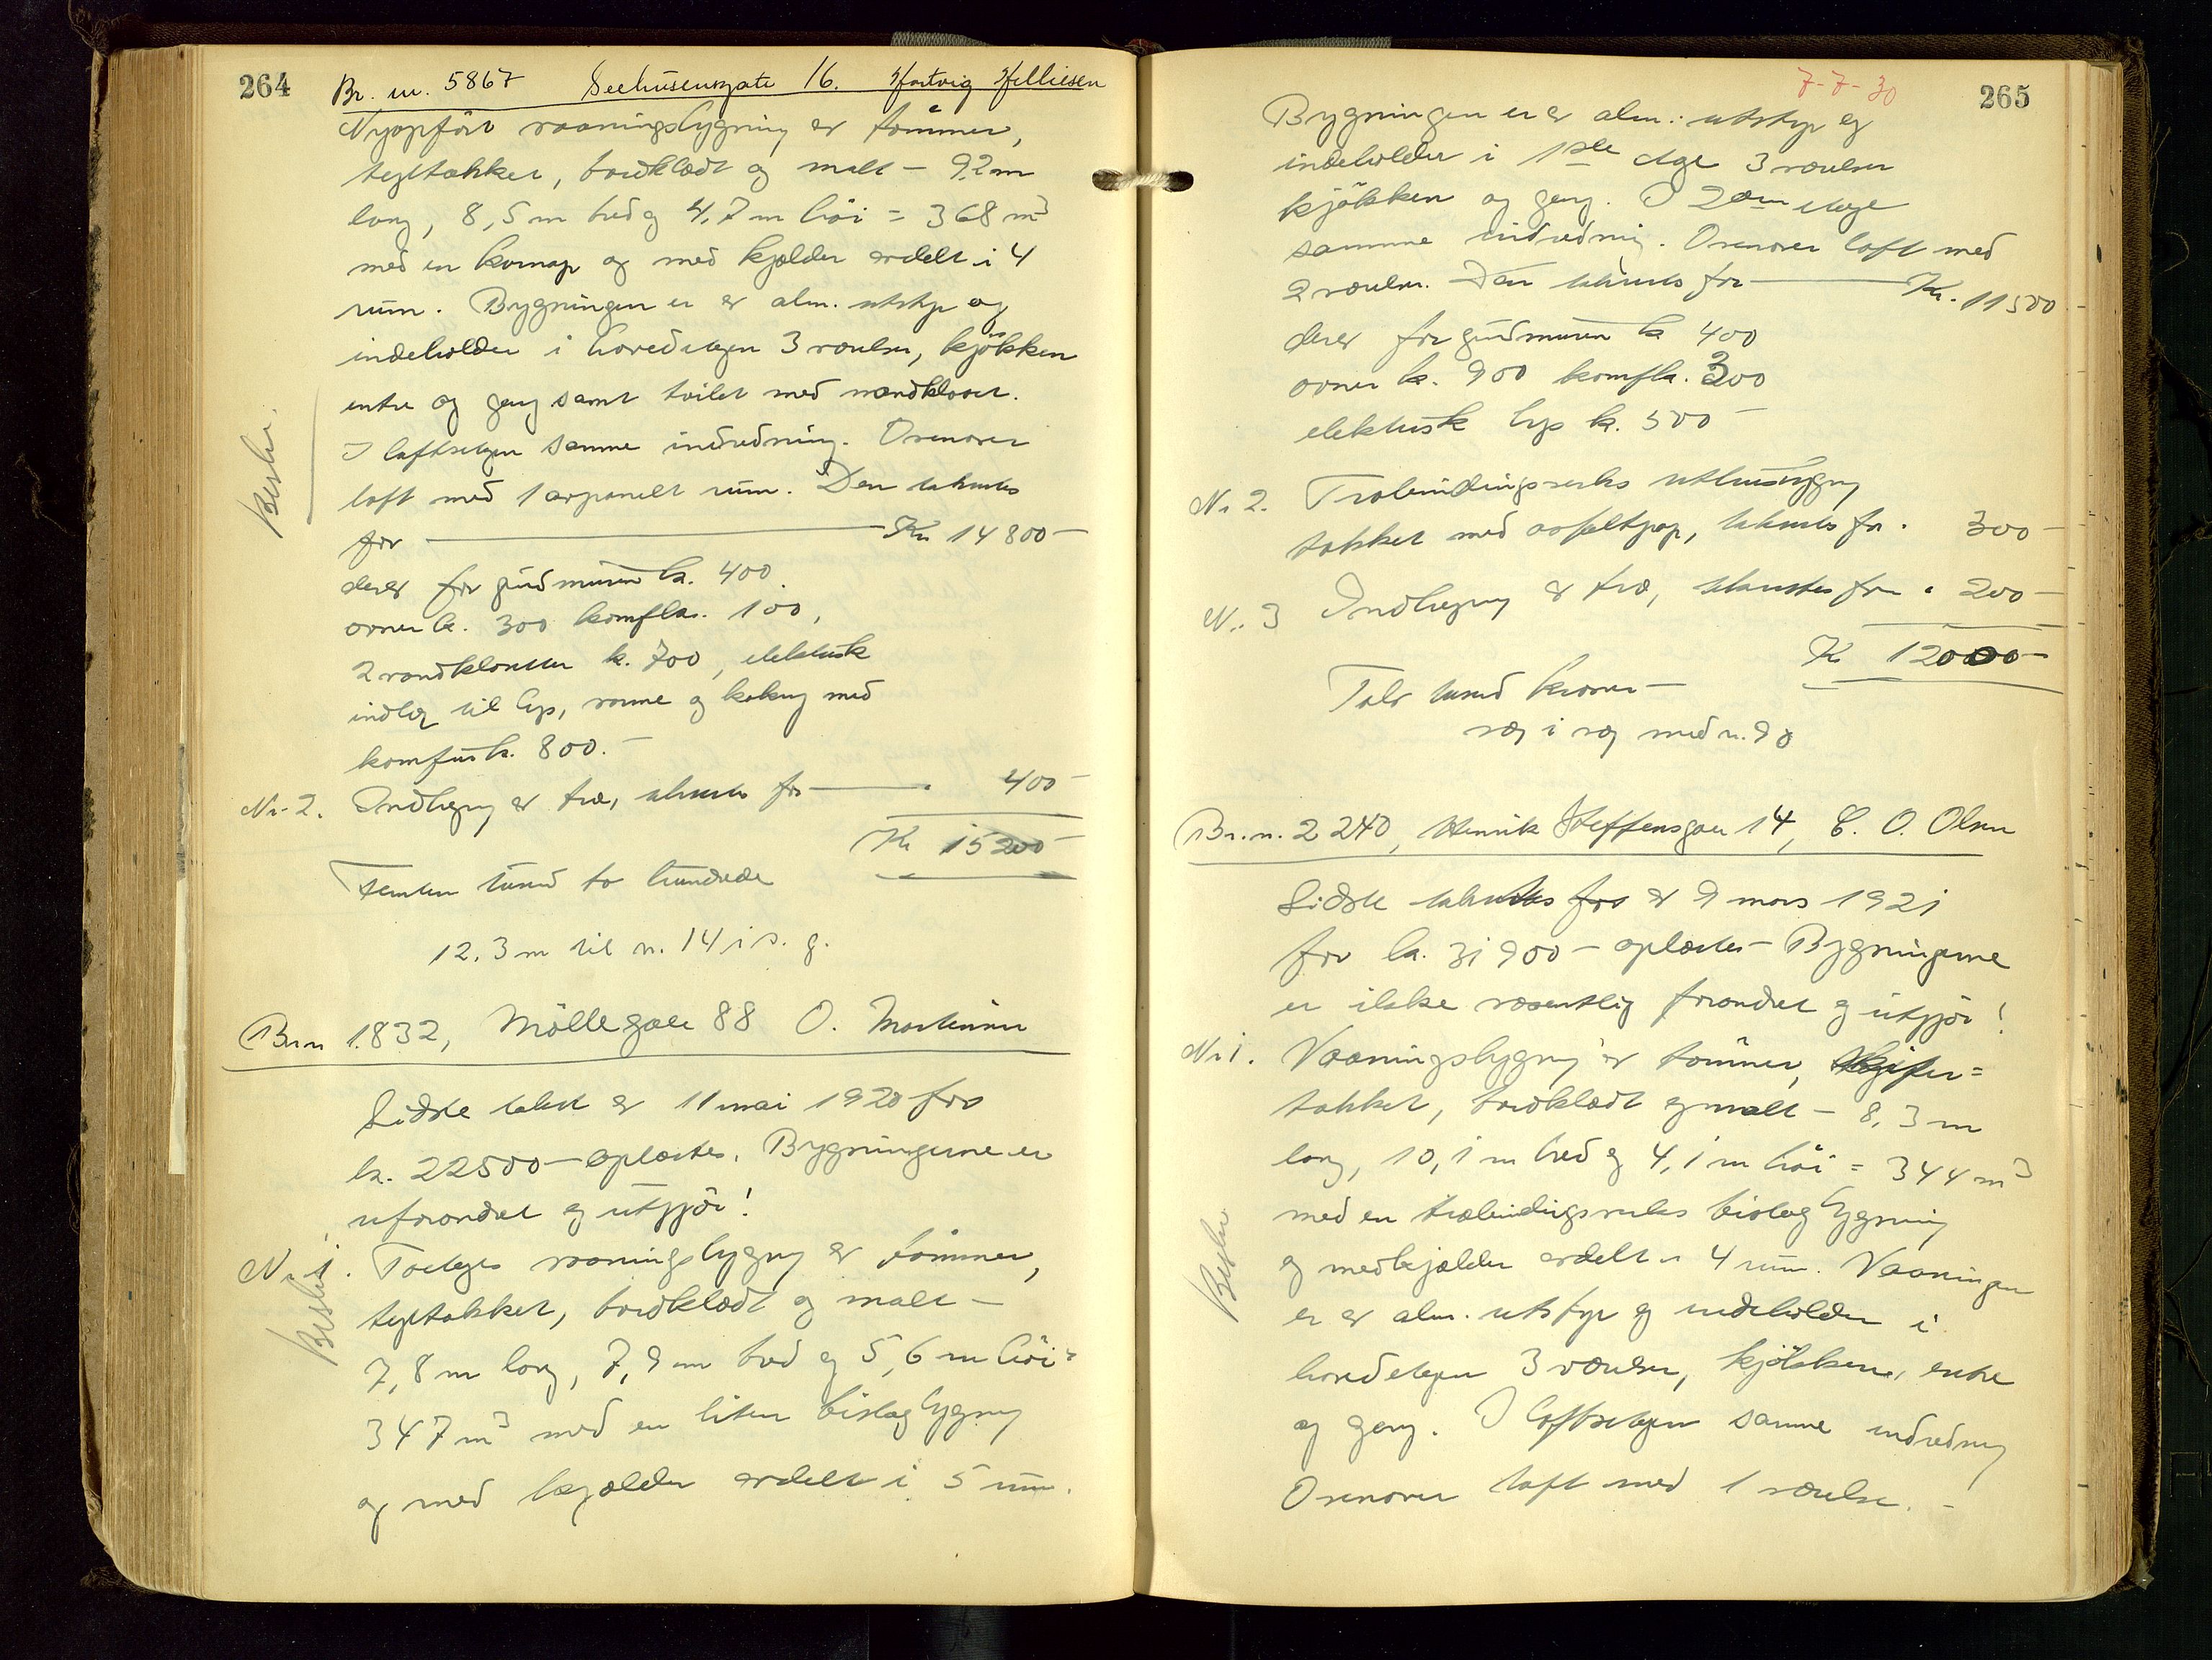 264
Br. nr. 5867 Seehusensgate 16. Hartvig Helliesen
Nyopført vaaningsbygning av tømmer,
tegltækket, bordklædt og malt – 9,2 m
lang, 8,5 m bred og 4,7 m høi = 368 m³
med en kvernap og med kjælder avdelt i 4
rum. Bygningen er av alm. utstyr og
indeholder i hovedetagen 3 værelser, kjøkken
entre og gang samt toilet med vandkloset.
I loftsetagen samme indredning. Ovenover
loft med 1 avpanelt rum. Den takseres
for Kr 14800 –
derav for grundmuren kr. 400.
ovner kr. 300 komfkr. 100,
2 vandklosetter kr. 700, elektrisk
indlæg til lys, varme og koking med
komfur kr. 800. –
Nr. 2. Indhegning av træ, takseres for 400 –
Kr 15200 –
Femten tusind to hundrede
12,3 m til nr. 14 i s. g.
Beskr.
Br nr 1832, Møllegate 88 O. Martinsen
Sidste takst av 11 mai 1920 for
kr. 22500 – oplæstes. Bygningerne er
uforandret og utgjør!
Nr 1. Toetages vaaningsbygning av tømmer,
tegltækket, bordklædt og malt –
7,8 m lang, 7,9 m bred og 5,6 m høi =
347 m³ med en liten bislagbygning
og med kjælder avdelt i 5 rum.
Beskr.
7-7-30
265
Bygningen er av alm. utstyr og
indeholder i 1ste etage 3 værelser
kjøkken og gang. I 2den etage
samme indredning. Ovenover loft med
2 værelser. Den takseres for Kr. 11500
derav for grundmuren kr 400
ovner kr. 900 komfkr. 300
elektrisk lys kr. 500 –
Nr 2. Træbindingsverks uthusbygning
tækket med asfaltpap, takseres for " 300 –
Nr. 3 Indhegning av træ, takseres for " 200 –
Kr 12000 –
Tolv tusind kroner –
væg i væg med nr. 90
Br. nr. 2240, Henrik Steffensgate 14, C. O. Olsen
Sidste takst av 9 mars 1921
for kr. 31900 – oplæstes – Bygningerne
er ikke væsentlig forandret og utgjør!
Nr 1. Vaaningsbygning av tømmer, skifer=
tækket, bordklædt og malt – 8,3 m
lang, 10,1 m bred og 4,1 m høi = 344 m³
med en træbindingsverks bislagbygning
og med kjælder avdelt i 4 rum. Vaaningen
er av alm. utstyr og indeholder i
hovedetagen 3 værelser, kjøkken, entre
og gang. I loftsetagen samme indredning
Ovenover loft med 1 værelse. –
Beskr.